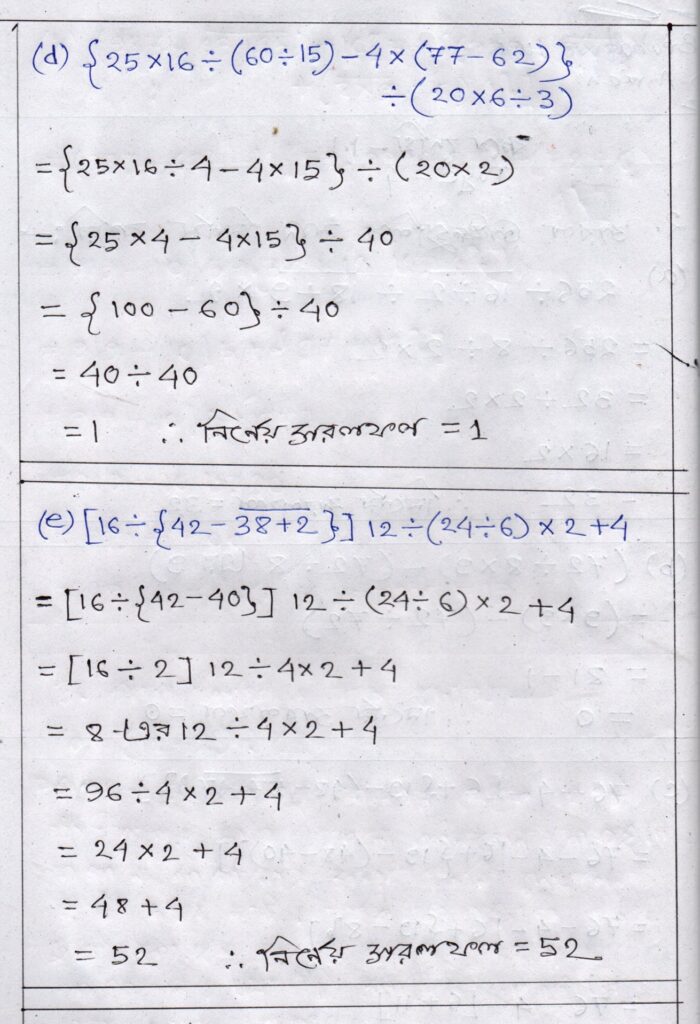 (d) {25×16÷(60÷15)-4×(77-62)}
÷(20×6÷3)
={25×16÷4-4×15}÷(20×2)
={25×4-4×15}÷40
={100-60}÷40
=40÷40
=1 ∴ নির্ণেয় সরলফল =1
(e) [16÷{42-3̅8̅+̅2̅}] 12÷(24÷6)×2+4
=[16÷{42-40}] 12÷(24÷6)×2+4
=[16÷2] 12÷4×2+4
=8 এর 12÷4×2+4
=96÷4×2+4
=24×2+4
=48+4
=52 ∴ নির্ণেয় সরলফল =52